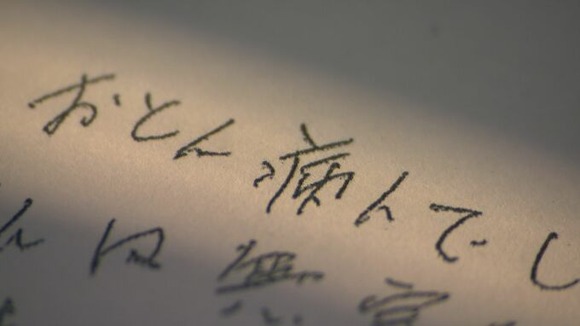 おとん病んでし
んは無意